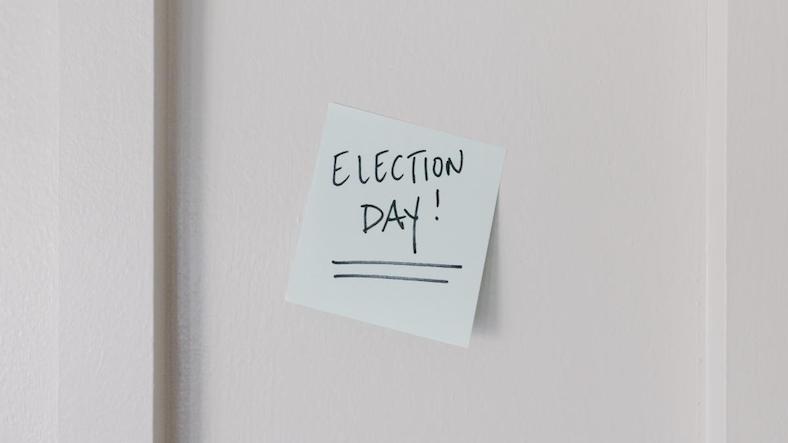 ELECTION
DAY!